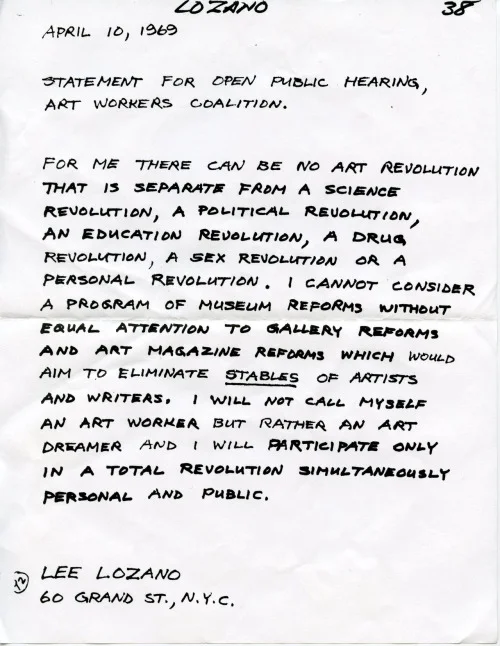 LOZANO 38
APRIL 10, 1969
STATEMENT FOR OPEN PUBLIC HEARING,
ART WORKERS COALITION.
FOR ME THERE CAN BE NO ART REVOLUTION
THAT IS SEPARATE FROM A SCIENCE
REVOLUTION, A POLITICAL REVOLUTION,
AN EDUCATION REVOLUTION, A DRUG
REVOLUTION, A SEX REVOLUTION OR A
PERSONAL REVOLUTION. I CANNOT CONSIDER
A PROGRAM OF MUSEUM REFORMS WITHOUT
EQUAL ATTENTION TO GALLERY REFORMS
AND ART MAGAZINE REFORMS WHICH WOULD
AIM TO ELIMINATE STABLES OF ARTISTS
AND WRITERS. I WILL NOT CALL MYSELF
AN ART WORKER BUT RATHER AN ART
DREAMER AND I WILL PARTICIPATE ONLY
IN A TOTAL REVOLUTION SIMULTANEOUSLY
PERSONAL AND PUBLIC.
LEE LOZANO
60 GRAND ST., N.Y.C.